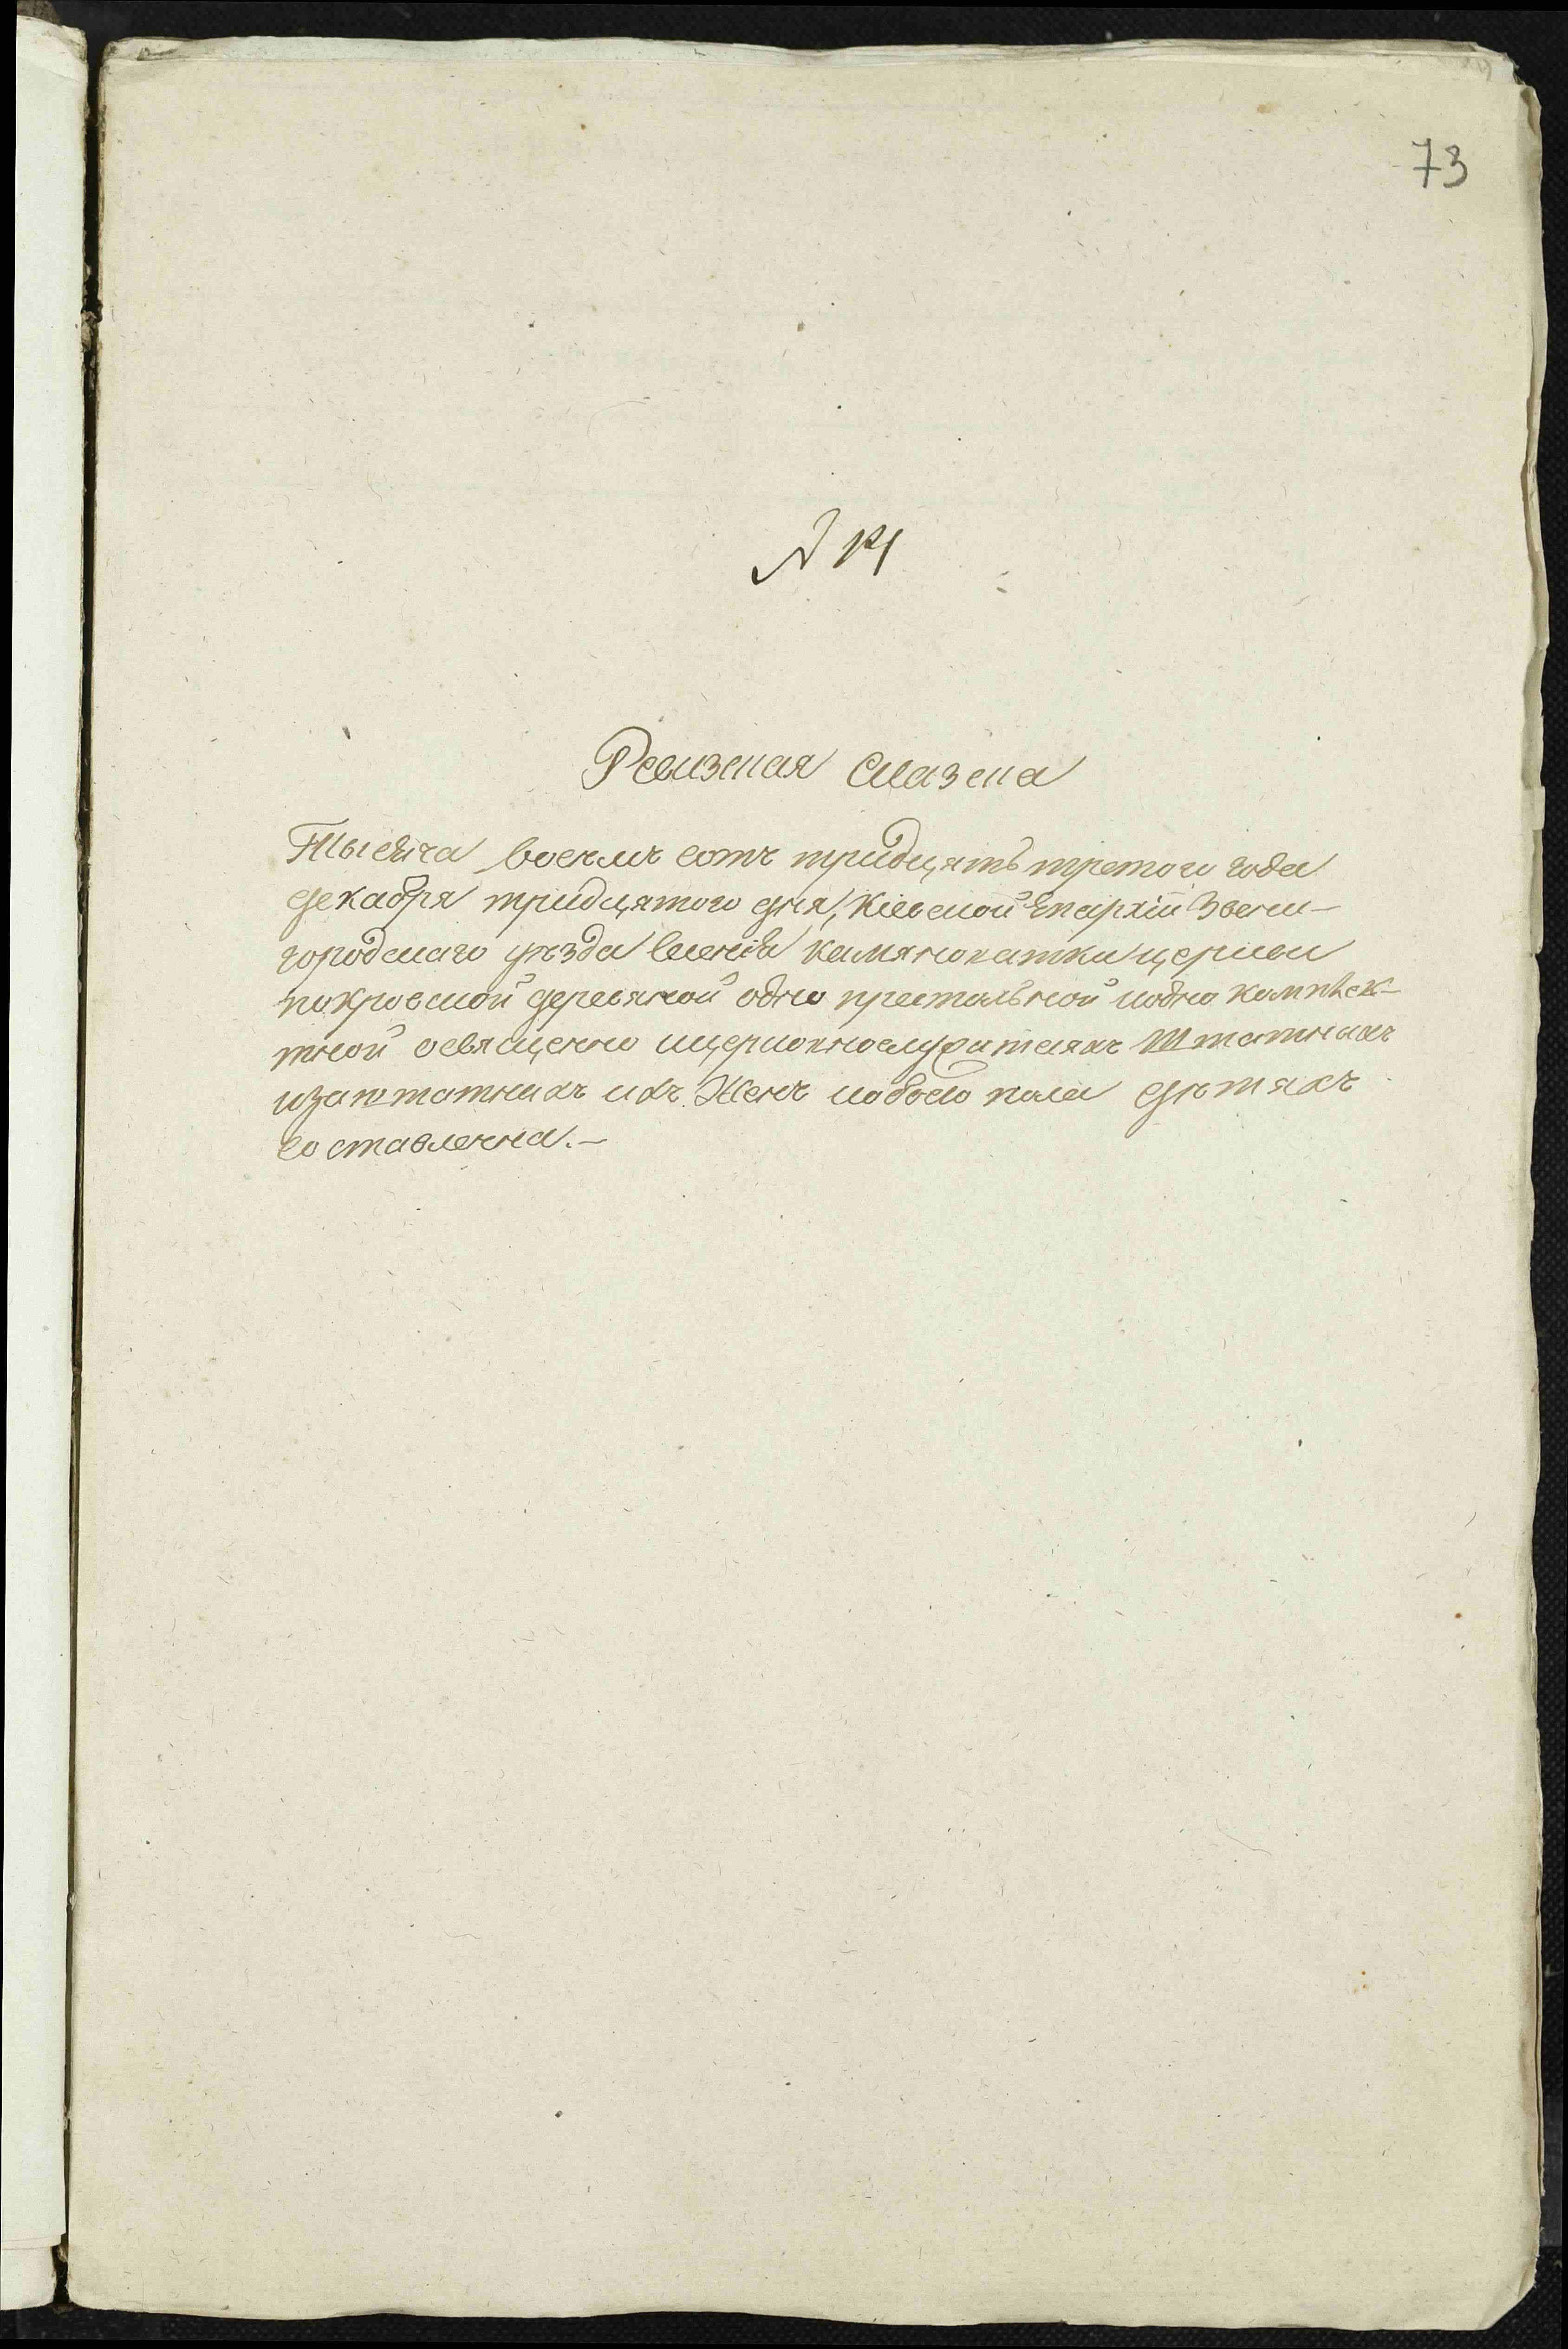 73
№ 14
Ревизская сказска
Тысяча восемъ сотъ тридцять третого года
декабря тридцятого дня, Кіевской Епархіи Звени-
городскаго уезда селенія Камяноватки церкви
покровской деревяной одно престальной иодно комплек-
тной освященно ицерковнослужителяхъ штатныхъ
изаштатныхъ ихъ женъ иобоего пола дѣтяхъ
составленна.-